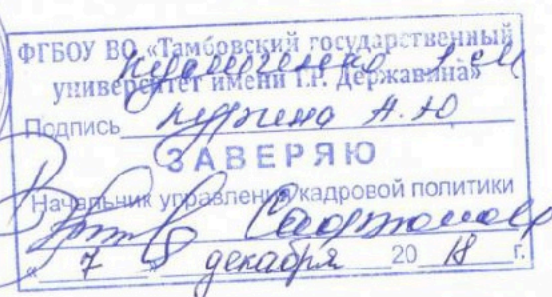 ФГБОУ ВО «Тамбовский государственный
университет имени Г.Р. Державина»
Подпись А.Ю
ЗАВЕРЯЮ
Начальник управления кадровой политики
« 7 » декабря 20 18 г.